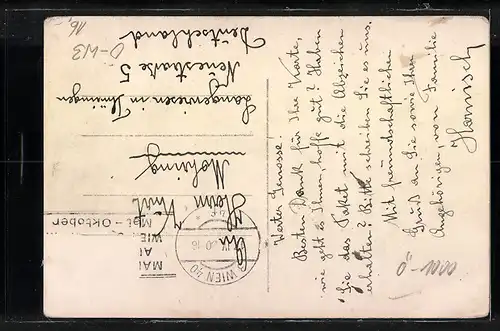 Werter Genosse.
Besten Dank für Ihre Karte,
wie geht es Ihnen, hoffe gut? Haben
Sie das Paket mit die Abzeichen
erhalten? Bitte schreiben Sie es uns.
Mit freundschaftlichen
Gruß an Sie sowie Ihren
Angehörigen, von Familie
Hornisch
Mai - Oktober
WIEN 40
An
Herrn Kurt
Möhring
Langewiesen in Thüringen
Neuestraße 5
Deutschland
0-W3